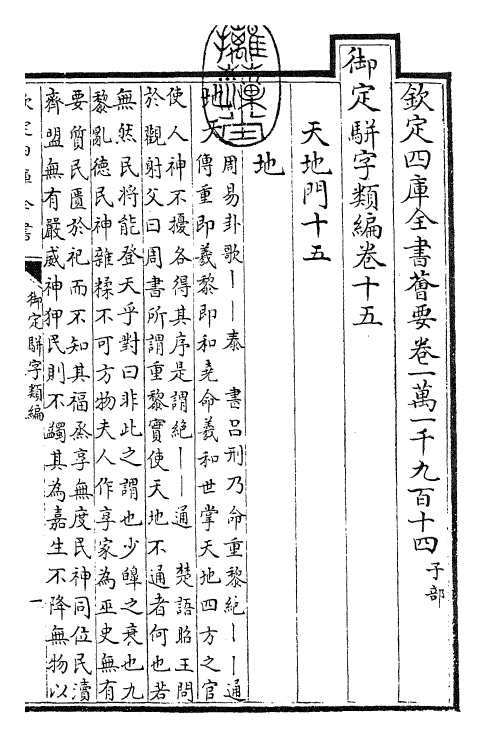 欽定四庫全書薈要卷一萬一千九百十四 子部
御定駢字類編卷十五
天地門十五
地
地天
周易卦歌丨丨泰 書呂刑乃命重黎絶丨丨通
傳重即羲黎即和堯命羲和世掌天地四方之官
使人神不擾各得其序是謂絶丨丨通 楚語昭王問
於觀射父曰周書所謂重黎實使天地不通者何也若
無然民將能登天乎對曰非此之謂也少皞之衰也九
黎亂德民神雜糅不可方物夫人作享家為巫史無有
要質民匱於祀而不知其福烝享無度民神同位民瀆
齊盟無有嚴威神狎民則不蠲其為嘉生不降無物以
欽定四庫全書
御定駢字類編
一